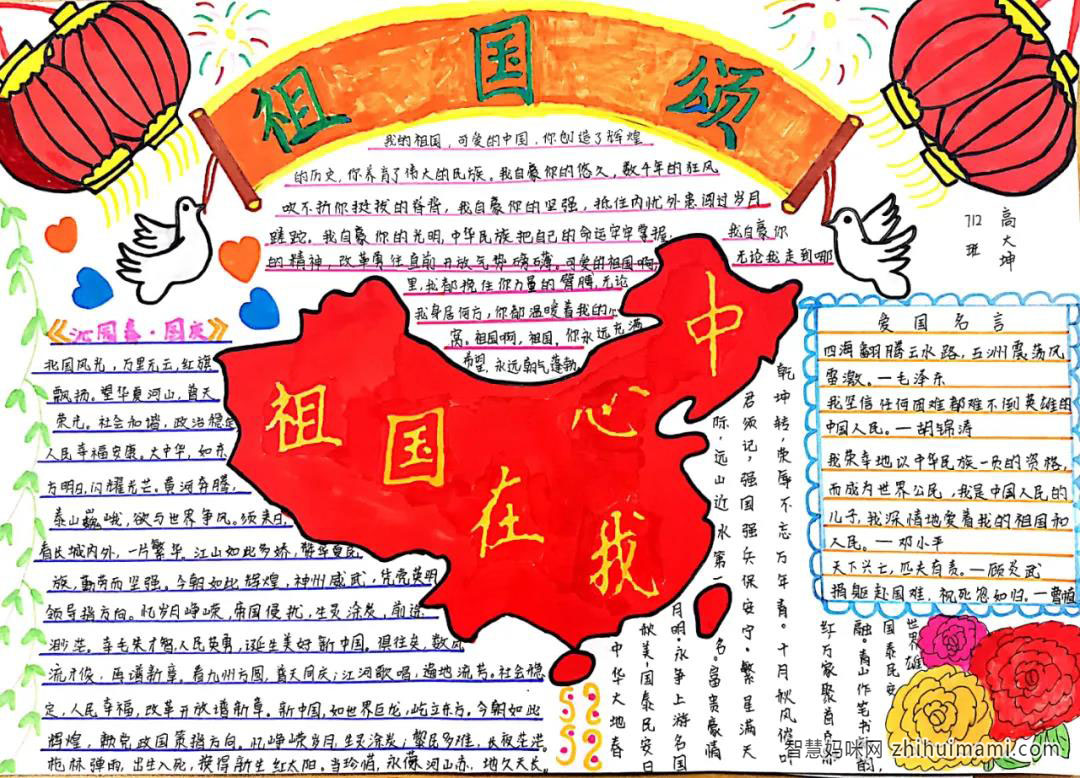 祖国颂
我的祖国，可爱的中国，你创造了辉煌
的历史，你养育了伟大的民族。我自豪你的悠久，数千年的狂风
吹不折你挺拔的脊背，我自豪你的坚强，抵住内忧外患闯过岁月
蹉跎。我自豪你的光明，中华民族把自己的命运牢牢掌握，我自豪你
的精神，改革勇往直前开放气势磅礴。可爱的祖国啊，无论我走到哪
里，我都挽住你力量的臂膊，无论
我身居何方，你都温暖着我的心
窝。祖国啊，祖国，你永远充满
希望，永远朝气蓬勃。
712班
高大坤
《沁园春·国庆》
北国风光，万里无云，红旗
飘扬。望华夏河山，普天
荣光。社会和谐，政治稳定
人民幸福安康。大中华，如东
方明日，闪耀光芒。黄河奔腾，
泰山巍峨，欲与世界争风。须来日，
看长城内外，一片繁华。江山如此多娇，
族，勤劳而坚强。今朝如此辉煌，神州威武，凭党英明
领导指方向。忆岁月峥嵘，帝国侵扰，生灵涂炭，前途
渺茫。幸毛朱才智，人民英勇，诞生美好新中国。俱往矣，数风
流才俊，再谱新章。看九州方圆，普天同庆；江河歌唱，遍地流芳。社会稳
定，人民幸福，改革开放谱新章。新中国，如世界巨龙，屹立东方。今朝如此
辉煌，赖党政国策指方向。忆峥嵘岁月，生灵涂炭；黎民多难，长夜茫茫。
枪林弹雨，出生入死，换得新生红太阳。当珍惜，永葆河山赤，地久天长。
祖国在我心中
爱国名言
四海翻腾云水路，五洲震荡风
雷激。—毛泽东
我坚信任何困难都难不倒英雄的
中国人民。—胡锦涛
我荣幸地以中华民族一员的资格，
而成为世界公民，我是中国人民的
儿子，我深情地爱着我的祖国和
人民。—邓小平
天下兴亡，匹夫有责。—顾炎武
捐躯赴国难，视死忽如归。—曹植
乾坤转，荣辱不忘万年青。十月秋风
君须记，强国强兵保安宁。繁星满天
际，远山近水第一名。富贵豪情
月明，永争上游名国
秋美，国泰民安日
中华大地春
世界雄
国泰民安
融。青山作笔书
红万家聚首
智慧妈咪网 zhihuimami.com